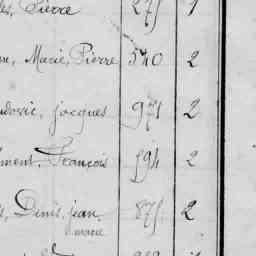 Pierre 275 1
Marie, Pierre 540 2
udovic, jacques 971 2
ment, François 594 2
Denis, jean 875 2
marie